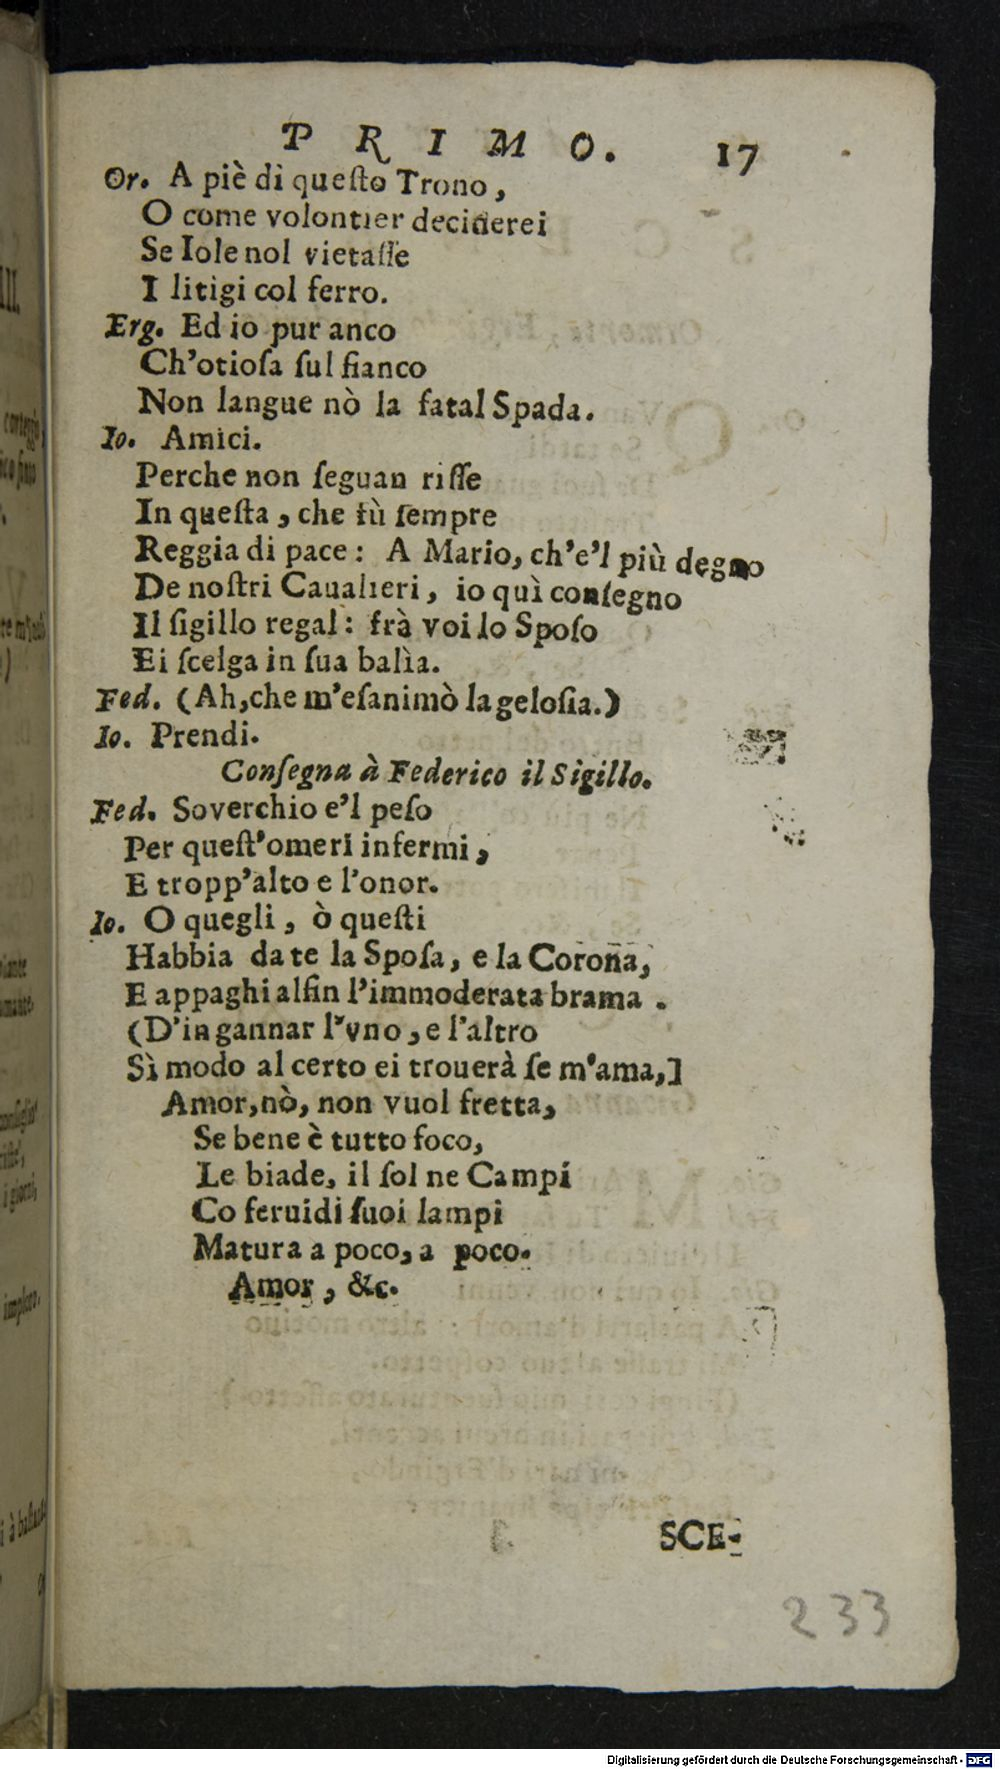 PRIMO. 17
Or. A piè di queſto Trono,
O come volontier deciderei
Se Iole nol vietaſſe
I litigi col ferro.
Erg. Ed io pur anco
Ch'otioſa ſul fianco
Non langue nò la fatal Spada.
Io. Amici.
Perche non ſeguan riſſe
In queſta, che fù ſempre
Reggia di pace: A Mario, ch'e'l più degno
De noſtri Caualieri, io quì conſegno
Il ſigillo regal: frà voi lo Spoſo
Ei ſcelga in ſua balìa.
Fed. (Ah, che m'eſanimò la geloſia.)
Io. Prendi.
Conſegna à Federico il Sigillo.
Fed. Soverchio e'l peſo
Per queſt'omeri infermi,
E tropp'alto e l'onor.
Io. O quegli, ò queſti
Habbia da te la Spoſa, e la Corona,
E appaghi alfin l'immoderata brama.
(D'ingannar l'vno, e l'altro
Sì modo al certo ei trouerà ſe m'ama,]
Amor, nò, non vuol fretta,
Se bene è tutto foco,
Le biade, il ſol ne Campi
Co feruidi ſuoi lampi
Matura a poco, a poco.
Amor, &c.
SCE-
233
Digitalisierung gefördert durch die Deutsche Forschungsgemeinschaft - DFG